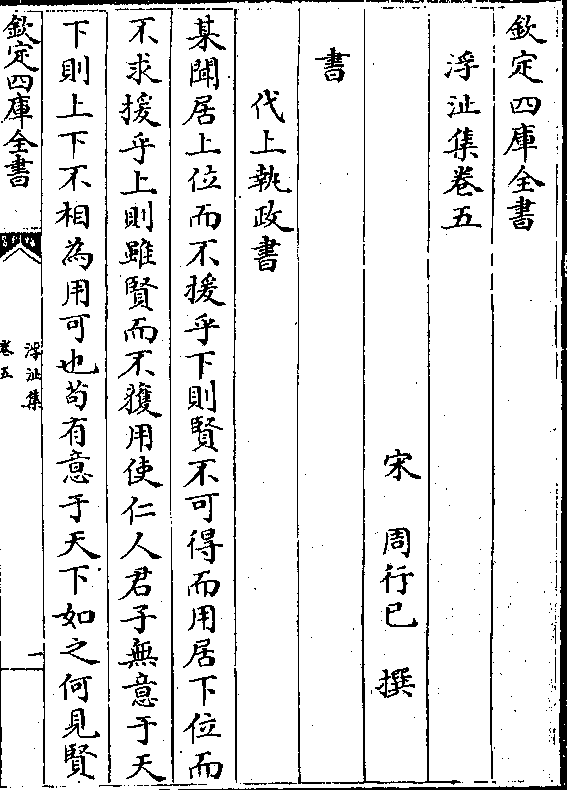 欽定四庫全書
浮沚集卷五
宋 周行已 撰
書
代上執政書
某聞居上位而不援乎下則賢不可得而用居下位而
不求援乎上則雖賢而不獲用使仁人君子無意于天
下則上下不相為用可也苟有意于天下如之何見賢
欽定四庫全書
浮沚集
卷五
一